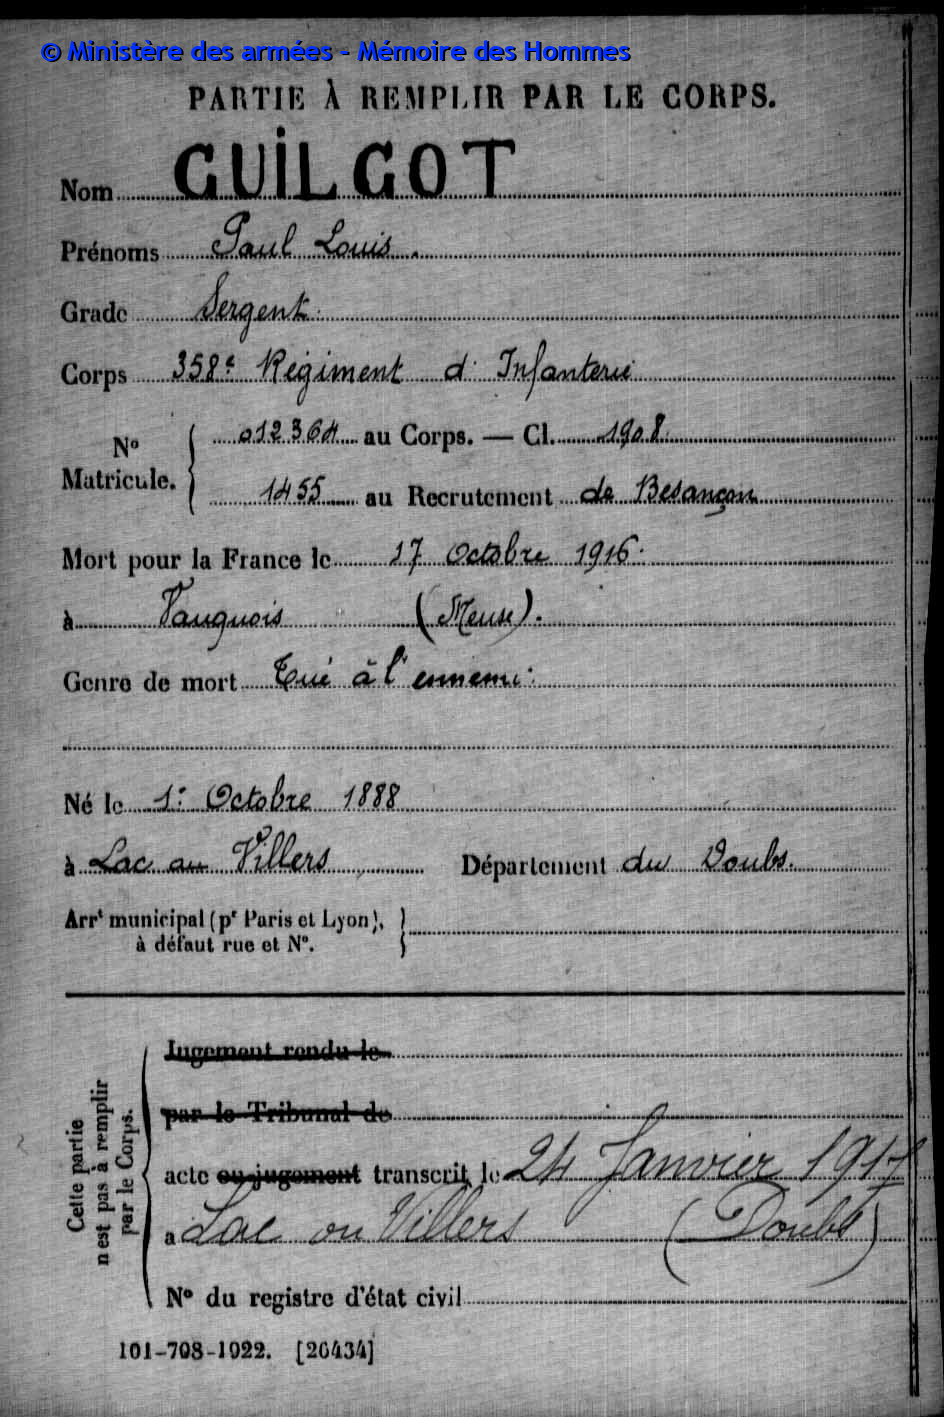 © Ministère des armées - Mémoire des Hommes
PARTIE À REMPLIR PAR LE CORPS.
Nom GUILGOT
Prénoms Paul Louis.
Grade Sergent.
Corps 358e Régiment d'Infanterie
No Matricule. { 012364 au Corps. — Cl. 1908.
1455 au Recrutement de Besançon
Mort pour la France le 17 Octobre 1916.
à Vauquois (Meuse).
Genre de mort Tué à l'ennemi.
Né le 1er Octobre 1888
à Lac au Villers Département du Doubs.
Arrt municipal (pr Paris et Lyon), à défaut rue et No. }
Cette partie
n'est pas à remplir
par le Corps.
Jugement rendu le
par le Tribunal de
acte ou jugement transcrit le 24 Janvier 1917
à Lac ou Villers (Doubs)
No du registre d'état civil
101-708-1922. [26434]